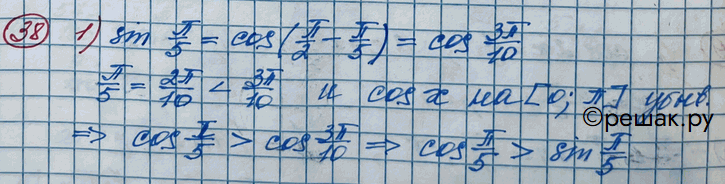 38 1) sin π/5 = cos(π/2 - π/5) = cos 3π/10
π/5 = 2π/10 < 3π/10 и cos x на [0; π] убыв.
©решак.ру
=> cos π/5 > cos 3π/10 => cos π/5 > sin π/5